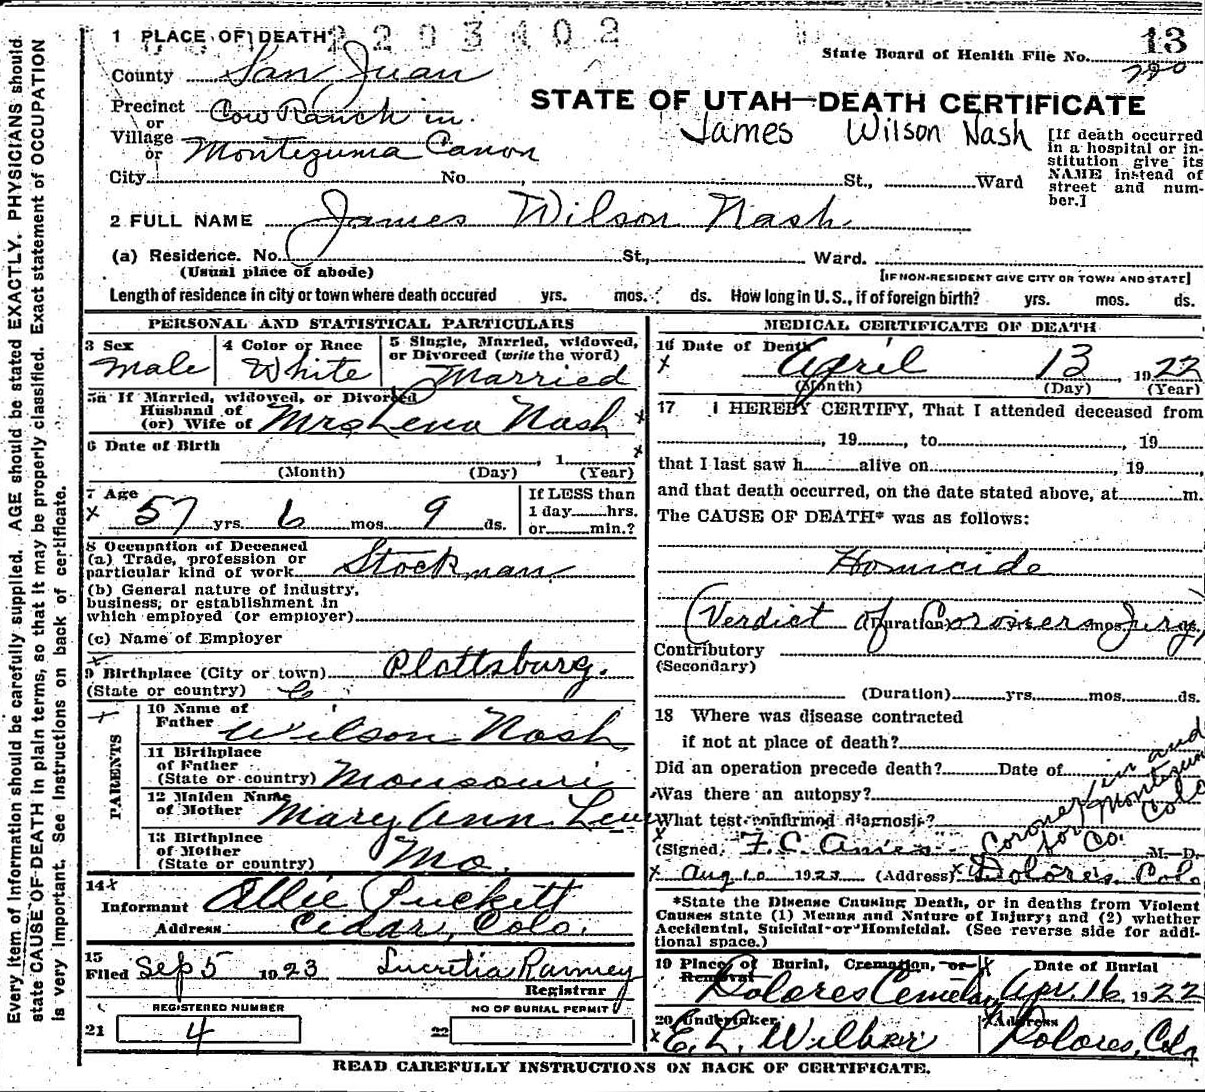 2203402
1 PLACE OF DEATH
State Board of Health File No. 13
County San Juan
220
Precinct Cow Ranch in
or
STATE OF UTAH—DEATH CERTIFICATE
Village Montezuma Canon
or
James Wilson Nash
[If death occurred in a hospital or institution give its NAME instead of street and number.]
City No. St., Ward
2 FULL NAME James Wilson Nash
(a) Residence. No. St., Ward.
(Usual place of abode)
[IF NON-RESIDENT GIVE CITY OR TOWN AND STATE]
Length of residence in city or town where death occured yrs. mos. ds. How long in U. S., if of foreign birth? yrs. mos. ds.
PERSONAL AND STATISTICAL PARTICULARS
3 Sex
Male
4 Color or Race
White
5 Single, Married, widowed,
or Divorced (write the word)
Married
5a If Married, widowed, or Divorced
Husband of
(or) Wife of Mrs Lena Nash
6 Date of Birth
, 1
(Month) (Day) (Year)
7 Age
57 yrs. 6 mos. 9 ds.
If LESS than
1 day hrs.
or min.?
8 Occupation of Deceased
(a) Trade, profession or
particular kind of work Stockman
(b) General nature of industry,
business, or establishment in
which employed (or employer)
(c) Name of Employer
9 Birthplace (City or town) Plattsburg.
(State or country)
PARENTS
10 Name of
Father Wilson Nash
11 Birthplace
of Father
(State or country) Monsouri
12 Maiden Name
of Mother Mary Ann
13 Birthplace
of Mother
(State or country) Mo.
14
Informant Allie Puckett
Address Cedar, Colo.
15
Filed Sep 5 1923 Lucretia Ranney
Registrar
REGISTERED NUMBER
21 4
NO OF BURIAL PERMIT
22
MEDICAL CERTIFICATE OF DEATH
16 Date of Death April 13, 1922
(Month) (Day) (Year)
17 I HEREBY CERTIFY, That I attended deceased from
, 19 , to , 19
that I last saw h alive on , 19
and that death occurred, on the date stated above, at m.
The CAUSE OF DEATH* was as follows:
Homicide
(Verdict of Coroners Jury)
(Duration) yrs. mos. ds.
Contributory
(Secondary)
(Duration) yrs. mos. ds.
18 Where was disease contracted
if not at place of death?
Did an operation precede death? Date of
Was there an autopsy?
What test confirmed diagnosis?
(Signed) F. C. M.—D.
Coroner in and
for Montezuma
Co. Colo
Aug 10 1923 (Address) Dolores Colo
*State the Disease Causing Death, or in deaths from Violent
Causes state (1) Means and Nature of Injury; and (2) whether
Accidental, Suicidal or Homicidal. (See reverse side for addi-
tional space.)
19 Place of Burial, Cremation, or
Removal
Date of Burial
Dolores Cemetary Apr. 16, 1922
20 Undertaker
E. L. Wilber
Address
Dolores, Colo
READ CAREFULLY INSTRUCTIONS ON BACK OF CERTIFICATE.
Every item of information should be carefully supplied. AGE should be stated EXACTLY. PHYSICIANS should
state CAUSE OF DEATH in plain terms, so that it may be properly classified. Exact statement of OCCUPATION
is very important. See instructions on back of certificate.